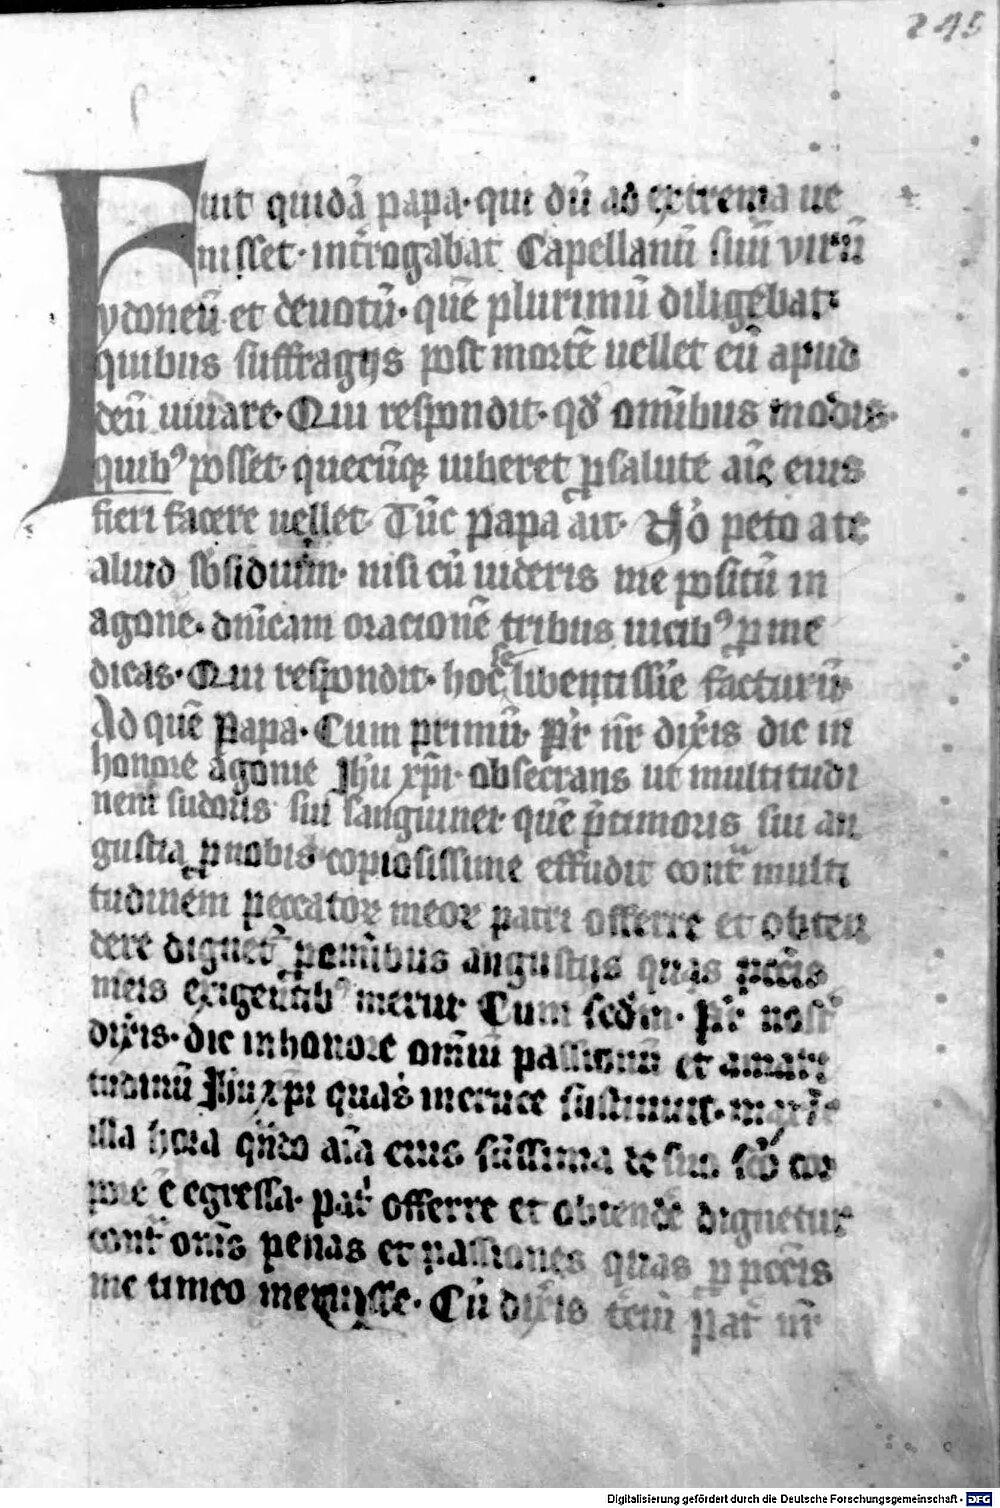 245
Fuit quidā papa · qui dū ad extrema ue
nisset · int̄rogabat Capellanū suū virū
ydoneū et deuotū · quē plurimū diligebat ·
quibus suffragijs post mortē uellet eū apud
deū iuuare · Qui respondit · qd̄ om̄ibus modis ·
quibꝯ posset · quecūqꝫ iuberet ꝑ salute aīe eius
fieri facere uellet · Tūc papa ait · Nō peto a te
aliud sb̄sidium · nisi cū uideris me positū in
agone · dn̄icam oracionē tribus uicibꝯ ꝑ me
dicas · Qui respondit · hoc se libentissīe facturū ·
Ad quē Papa · Cum primū · Pr̄ nr̄ dix̄is dic in
honore agonie Jhu xp̄i · obsecrans ut multitudi
nem sudoris sui sanguinei · quē p̄ timoris sui an
gustia ꝑ nobis copiosissime effudit cont̄ multi
tudinem peccatoꝝ meoꝝ patri offerre et obten
dere dignet̄ · pēnibus angustijs quas pcc̄is
meis exigentibꝯ merui · Cum scd̄m · Pr̄ nost̄
dix̄is · dic in honore om̄iū passionū et amari
tudinū Jhu xp̄i quas in cruce sustinuit · maxīe
illa hora qn̄do aīa eius sc̄issima de suo sc̄o cor
pore ē egressa · pat̄ offerre et obtendē dignetur
cont̄ om̄s penas et passiones quas ꝑ pcc̄is
me timeo meruisse · Cū dix̄is t̄ciū Pat̄ nr̄
Digitalisierung gefördert durch die Deutsche Forschungsgemeinschaft - DFG